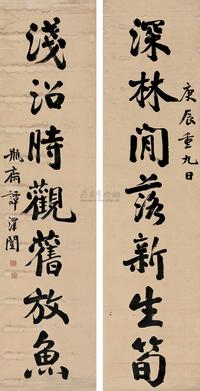 深林閒落新生筍
庚辰重九日
淺沼時觀舊放魚
瓶齋譚澤闓